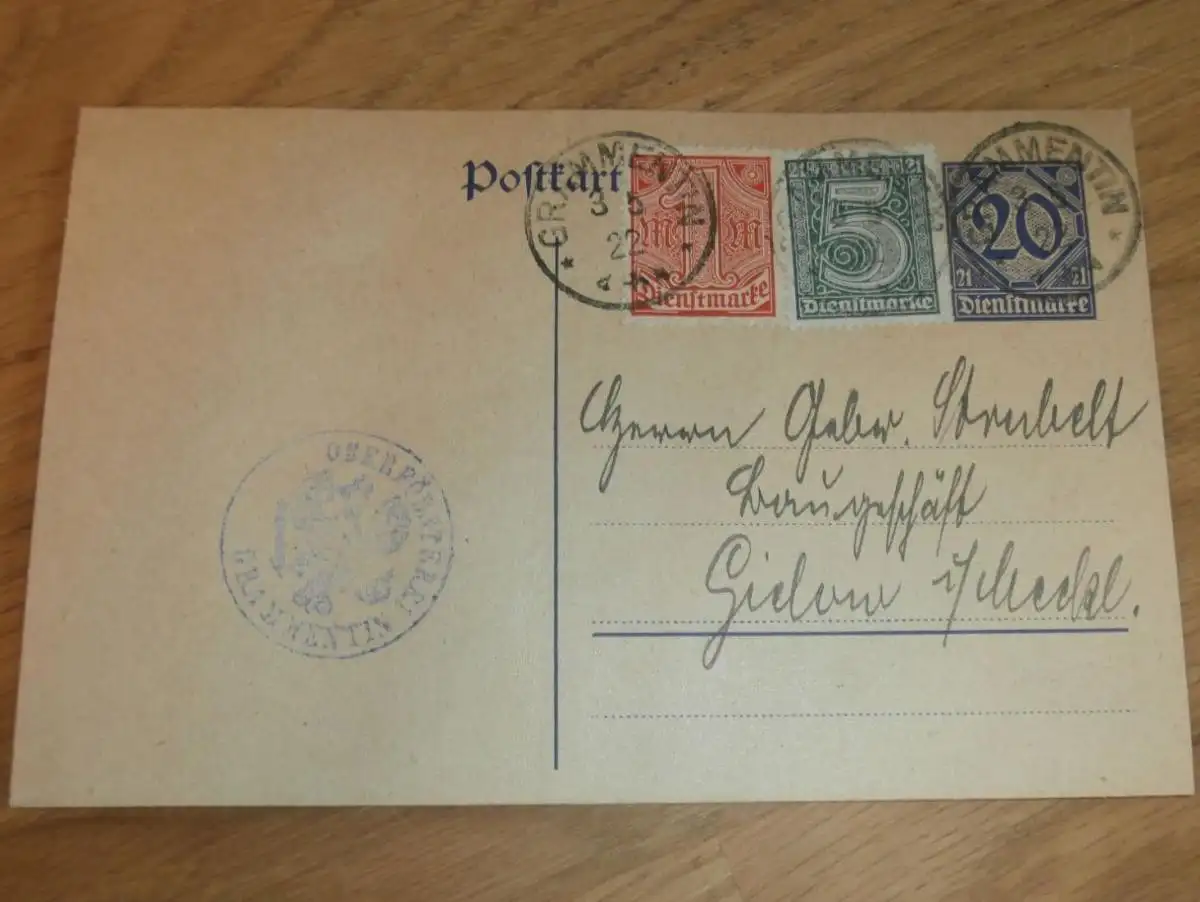 Postkart
GRAMMENTIN
3 5
22
1
M M
Dienstmarke
21 21
5
Dienstmarke
GRAMMENTIN
20
21 21
Dienstmarke
Herrn Gebr. Strubelt
Baugeschäft
Gielow i/Meckl.
OBERFÖRSTEREI
GRAMMENTIN